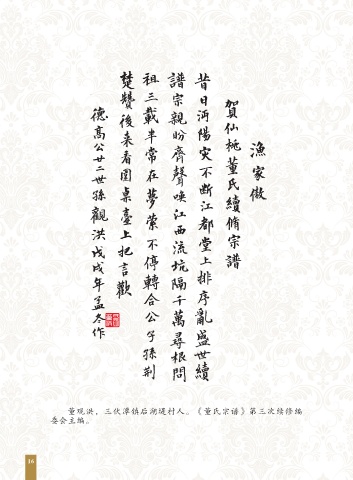 漁家傲
賀仙桃董氏續脩宗譜
昔日沔陽災不斷江都堂上排序亂盛世續
譜宗親盼齊聲喚江西流坑隔千萬尋根問
祖三載半常在夢縈不停轉合公子孫荆
楚贊後来看圓桌臺上把言歡
德高公廿二世孫觀洪戊戌年孟冬作
董观洪，三伏潭镇后湖堤村人。《董氏宗谱》第三次续修编
委会主编。
16